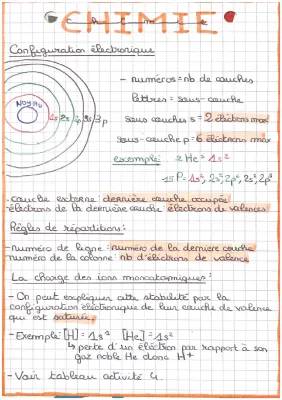 CHIMIE
Configuration électronique
Noyau 1s 2s 2p 3s 3p
- numéros = nb de couches
lettres = sous-couche
sous couches s = 2 électrons max
sous-couche p = 6 électrons max
exemple: ₂He = 1s²
₁₅P = 1s², 2s², 2p⁶, 3s², 3p³
- couche externe: dernière couche occupée
- électrons de la dernière couche: électrons de valences
Règles de répartitions:
- numéro de ligne: numéro de la dernière couche
numéro de la colonne: nb d'électrons de valence
La charge des ions monoatomiques:
- On peut expliquer cette stabilité par la
configuration électronique de leur couche de valence
qui est saturée.
- Exemple: [H] = 1s¹ [He] = 1s²
↳ perte d'un électron par rapport à son
gaz noble He donc H⁺
- Voir tableau activité 4.